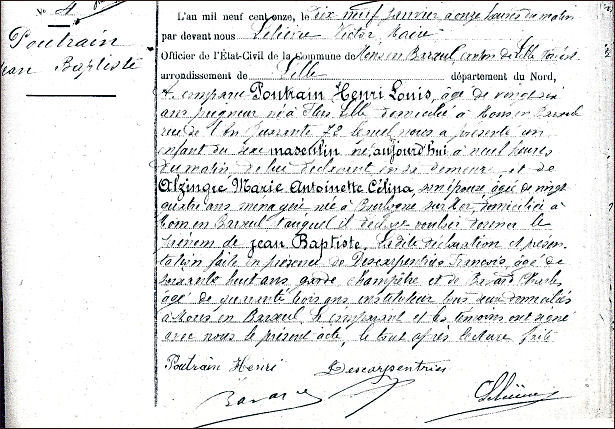 No 4
Poutrain
Jean Baptiste
L'an mil neuf cent onze, le dix neuf janvier a onze heures du matin
par devant nous Lelièvre Victor Maire
Officier de l'État-Civil de la Commune de Mons en Barœul, canton de Lille
arrondissement de Lille département du Nord,
A comparu Poutrain Henri Louis, âgé de vingt six
ans peigneur né à Lille domicilié à Mons en Barœul
rue de quarante 72 lequel nous a présenté un
enfant du sexe masculin né aujourd'hui à neuf heures
du matin de lui déclarant en sa demeure et de
Alzingre Marie Antoinette Célina, son épouse âgée de vingt
quatre ans ménagère née à Boulogne sur Mer, domiciliée à
Mons en Barœul auquel il déclare vouloir donner le
prénom de Jean Baptiste, Ladite déclaration et présen
tation faite en présence de Descarpentries François, âgé de
soixante huit ans garde champêtre et de Bavard Charles
âgé de quarante trois ans instituteur tous deux domiciliés
à Mons en Barœul Le comparant et les témoins ont signé
avec nous le présent acte, le tout après lecture faite
Poutrain Henri Descarpentries